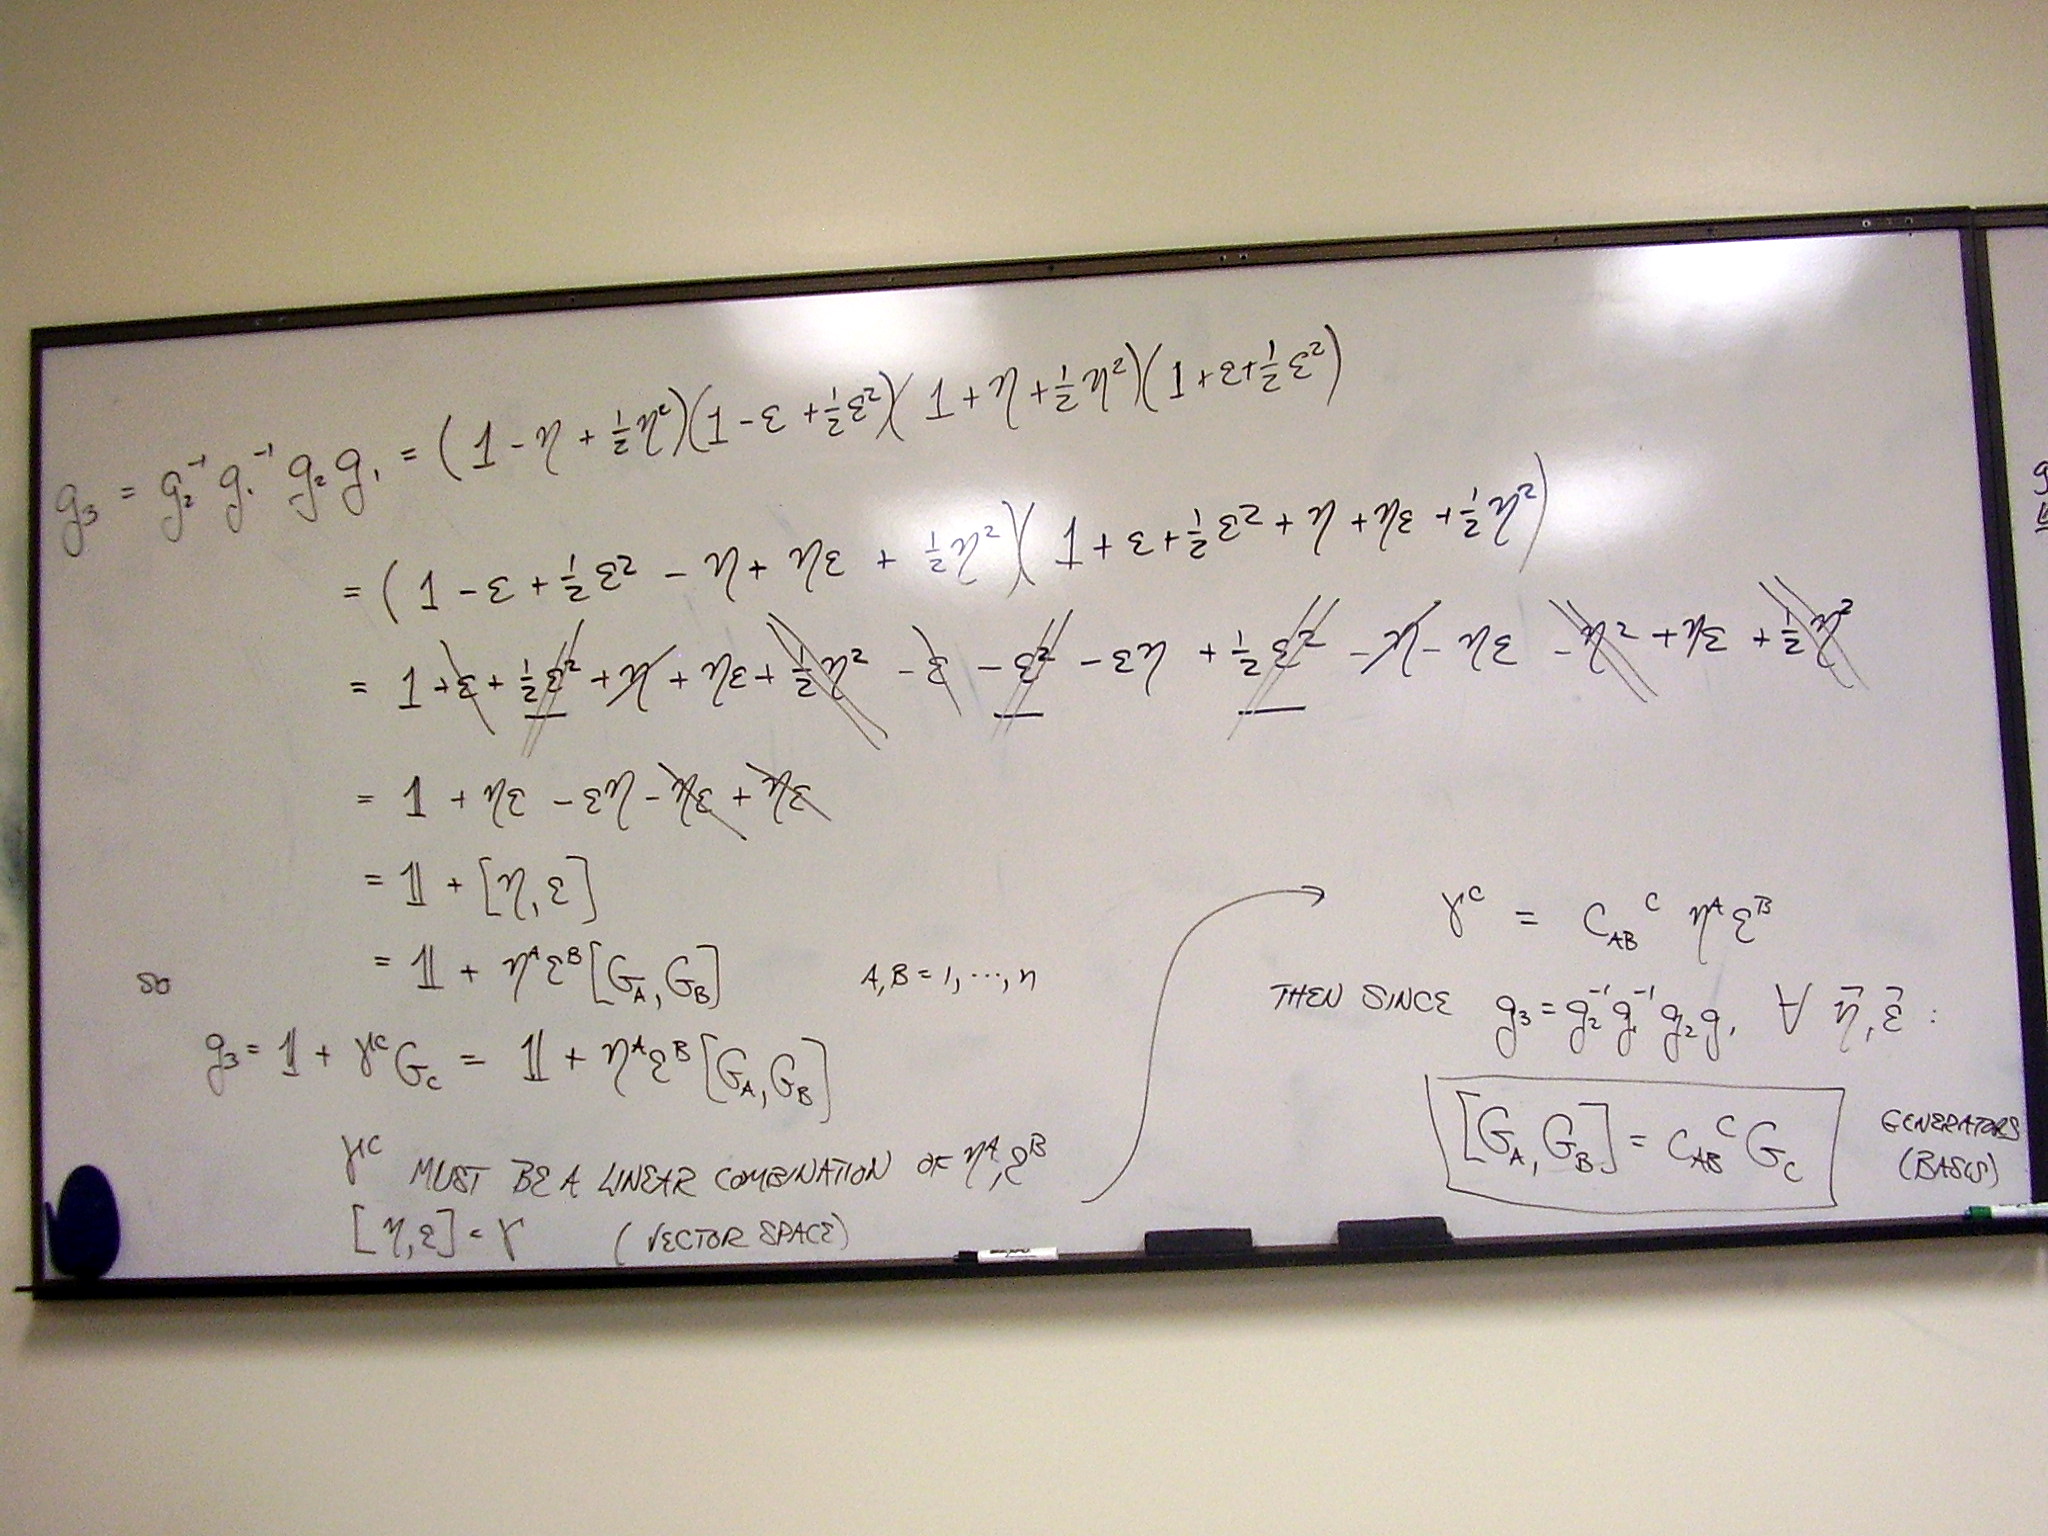 g₃ = g₂⁻¹ g₁⁻¹ g₂ g₁ = (1 - η + ½η²)(1 - ε + ½ε²)(1 + η + ½η²)(1 + ε + ½ε²)
= (1 - ε + ½ε² - η + ηε + ½η²)(1 + ε + ½ε² + η + ηε + ½η²)
= 1 + ε + ½ε² + η + ηε + ½η² - ε - ε² - εη + ½ε² - η - ηε - η² + ηε + ½η²
= 1 + ηε - εη - ηε + ηε
= 𝟙 + [η, ε]
= 𝟙 + η^A ε^B [G_A, G_B] A, B = 1, ⋯, n
so
g₃ = 𝟙 + γ^C G_C = 𝟙 + η^A ε^B [G_A, G_B]
γ^C MUST BE A LINEAR COMBINATION OF η^A, ε^B
[η, ε] = γ (VECTOR SPACE)
γ^C = C_AB^C η^A ε^B
THEN SINCE g₃ = g₂⁻¹ g₁⁻¹ g₂ g₁ ∀ η⃗, ε⃗ :
[G_A, G_B] = C_AB^C G_C
GENERATORS
(BASIS)